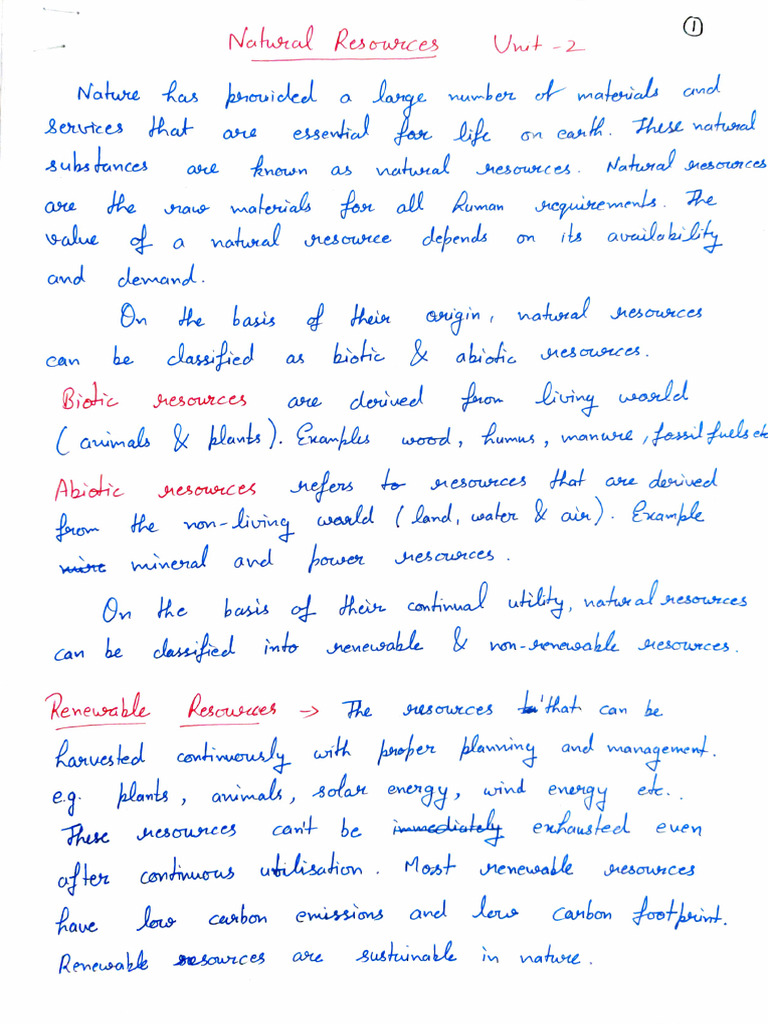 ①
Natural Resources Unit - 2
Nature has provided a large number of materials and
services that are essential for life on earth. These natural
substances are known as natural resources. Natural resources
are the raw materials for all human requirements. The
value of a natural resource depends on its availability
and demand.
On the basis of their origin, natural resources
can be classified as biotic & abiotic resources.
Biotic resources are derived from living world
(animals & plants). Examples wood, humus, manure, fossil fuels etc
Abiotic resources refers to resources that are derived
from the non-living world (land, water & air). Example
mineral and power resources.
On the basis of their continual utility, natural resources
can be classified into renewable & non-renewable resources.
Renewable Resources → The resources that can be
harvested continuously with proper planning and management.
e.g. plants, animals, solar energy, wind energy etc..
These resources can't be immediately exhausted even
after continuous utilisation. Most renewable resources
have low carbon emissions and low carbon footprint.
Renewable resources are sustainable in nature.